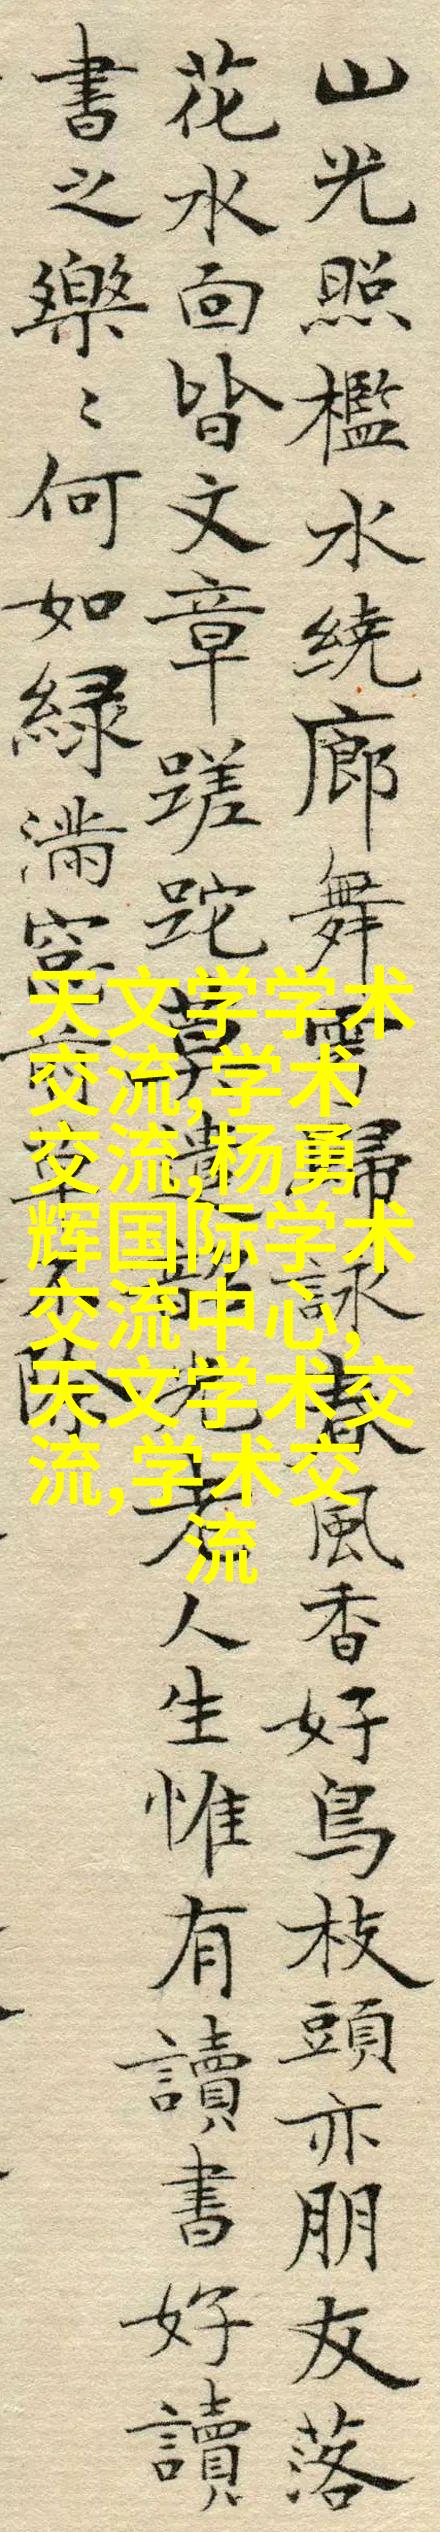 山光照檻水繞廊舞雩歸詠春風香好鳥枝頭亦朋友落
花水面皆文章蹉跎莫遣韶光老人生惟有讀書好讀
書之樂〻何如緑滿窓前草不除
天文学学术
交流,学术
交流,杨勇
辉国际学术
交流中心,
天文学术交
流,学术交
流